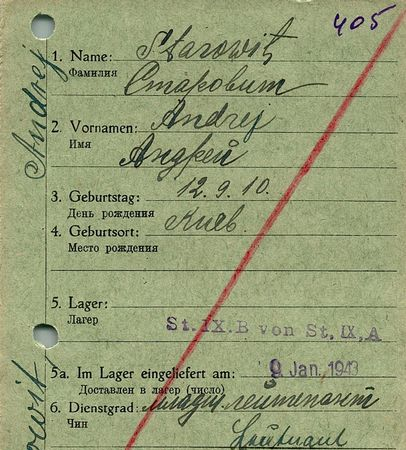 405
Andrej
1. Name: Starowit
Фамилия
Старовит
2. Vornamen: Andrej
Имя
Андрей
3. Geburtstag: 12.9.10.
День рождения
4. Geburtsort: Киев.
Место рождения
5. Lager:
Лагерь
St. IX. B von St. IX, A
5a. Im Lager eingeliefert am: 9. Jan. 1943
Доставлен в лагерь (число)
6. Dienstgrad: младш. лейтенант
Чин
Leutnant
owit